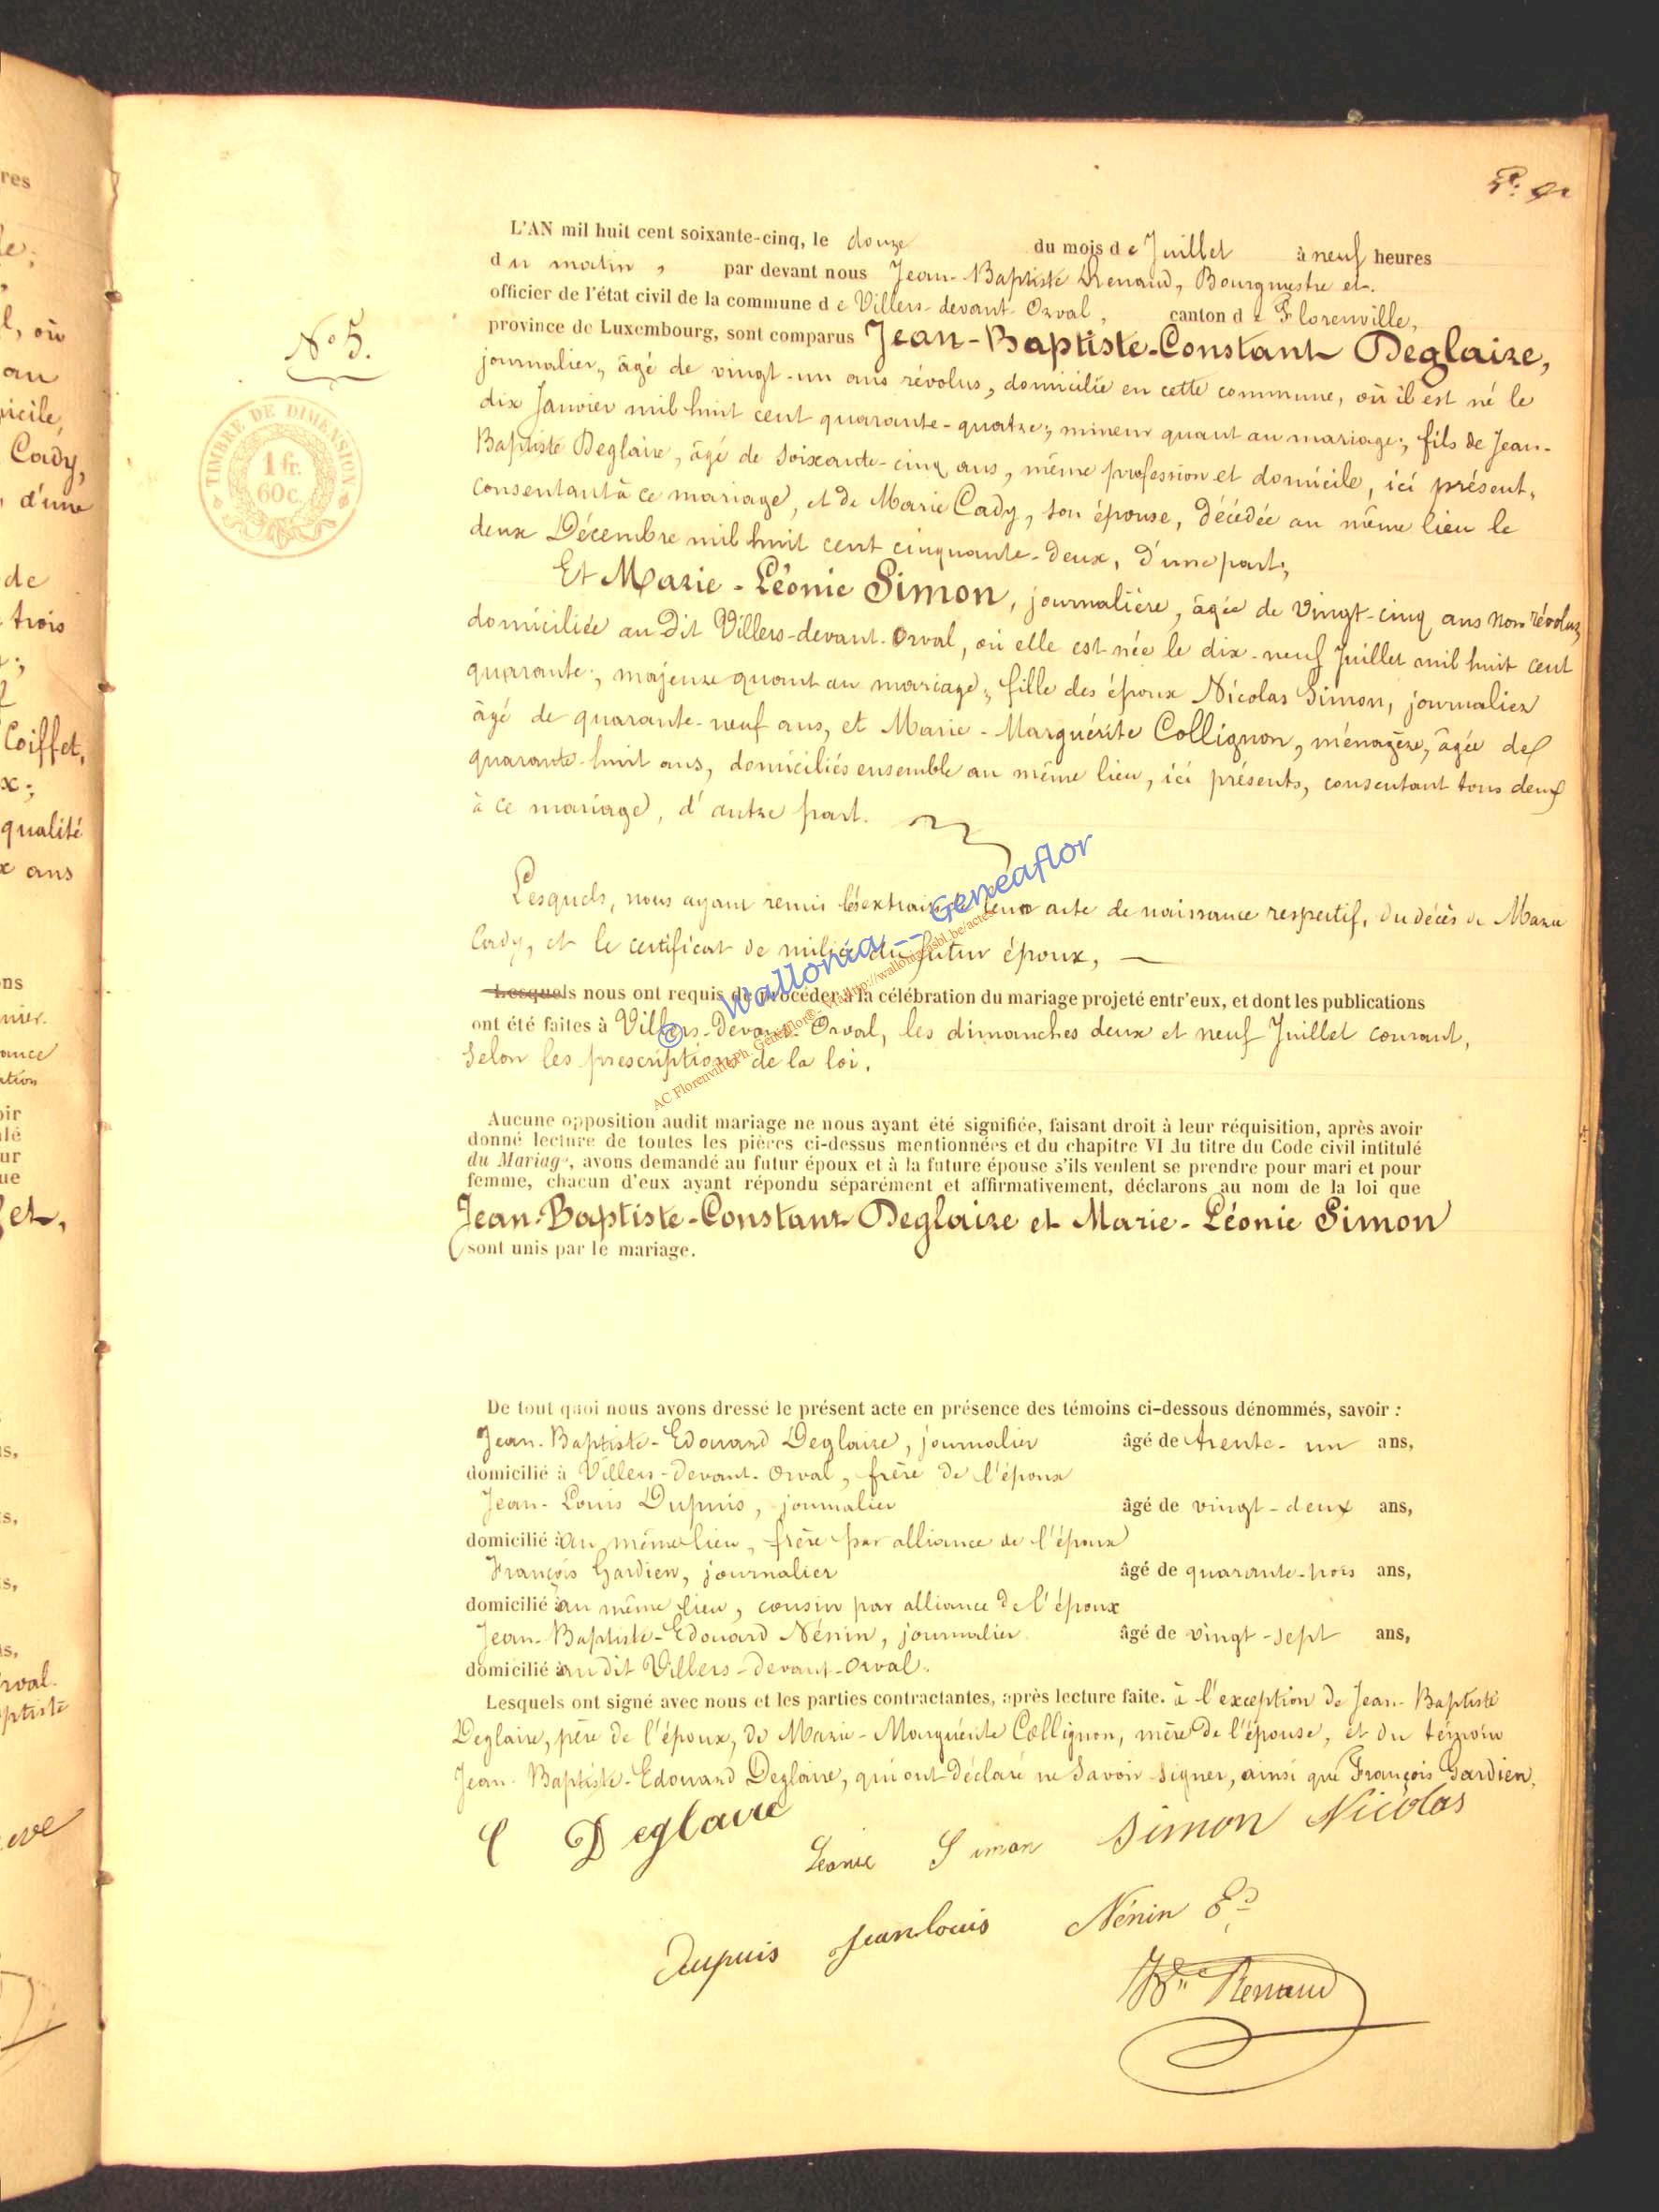 L'AN mil huit cent soixante-cinq, le douze du mois de Juillet à neuf heures
du matin, par devant nous Jean-Baptiste Renaud, Bourgmestre et
officier de l'état civil de la commune de Villers-devant-Orval, canton de Florenville,
province de Luxembourg, sont comparus Jean-Baptiste-Constant Deglaire,
N° 5.
journalier, âgé de vingt-un ans révolus, domicilié en cette commune, où il est né le
dix Janvier mil huit cent quarante-quatre; mineur quant au mariage; fils de Jean-
TIMBRE DE DIMENSION
1 fr.
60 c.
Baptiste Deglaire, âgé de soixante-cinq ans, même profession et domicile, ici présent,
consentant à ce mariage, et de Marie Cady, son épouse, décédée au même lieu le
deux Décembre mil huit cent cinquante-deux, d'une part;
Et Marie-Léonie Simon, journalière, âgée de vingt-cinq ans non révolus,
domiciliée au dit Villers-devant-Orval, où elle est née le dix-neuf Juillet mil huit cent
quarante; majeure quant au mariage; fille des époux Nicolas Simon, journalier
âgé de quarante-neuf ans, et Marie-Marguérite Collignon, ménagère, âgée de
quarante-huit ans, domiciliés ensemble au même lieu, ici présents, consentant tous deux
à ce mariage, d'autre part.
Lesquels, nous ayant remis les extraits de leur acte de naissance respectif, du décès de Marie
Cady, et le certificat de milice du futur époux,
Lesquels nous ont requis de procéder à la célébration du mariage projeté entr'eux, et dont les publications
ont été faites à Villers-devant-Orval, les dimanches deux et neuf Juillet courant,
selon les prescriptions de la loi.
© Wallonia -- Geneaflor
Aucune opposition audit mariage ne nous ayant été signifiée, faisant droit à leur réquisition, après avoir
donné lecture de toutes les pièces ci-dessus mentionnées et du chapitre VI du titre du Code civil intitulé
du Mariage, avons demandé au futur époux et à la future épouse s'ils veulent se prendre pour mari et pour
femme, chacun d'eux ayant répondu séparément et affirmativement, déclarons au nom de la loi que
Jean-Baptiste-Constant Deglaire et Marie-Léonie Simon
sont unis par le mariage.
De tout quoi nous avons dressé le présent acte en présence des témoins ci-dessous dénommés, savoir :
Jean-Baptiste-Edouard Deglaire, journalier âgé de trente-un ans,
domicilié à Villers-devant-Orval, frère de l'époux
Jean-Louis Dupuis, journalier âgé de vingt-deux ans,
domicilié au même lieu, frère par alliance de l'époux
François Gardien, journalier âgé de quarante-trois ans,
domicilié au même lieu, cousin par alliance de l'époux
Jean-Baptiste-Edouard Nénin, journalier âgé de vingt-sept ans,
domicilié au dit Villers-devant-Orval.
Lesquels ont signé avec nous et les parties contractantes, après lecture faite. à l'exception de Jean-Baptiste
Deglaire, père de l'époux, de Marie-Marguérite Collignon, mère de l'épouse, et du témoin
Jean-Baptiste-Edouard Deglaire, qui ont déclaré ne savoir signer, ainsi que François Gardien.
C Deglaire
Léonie Simon Simon Nicolas
Dupuis jeanlouis Nénin Ed
Renaud